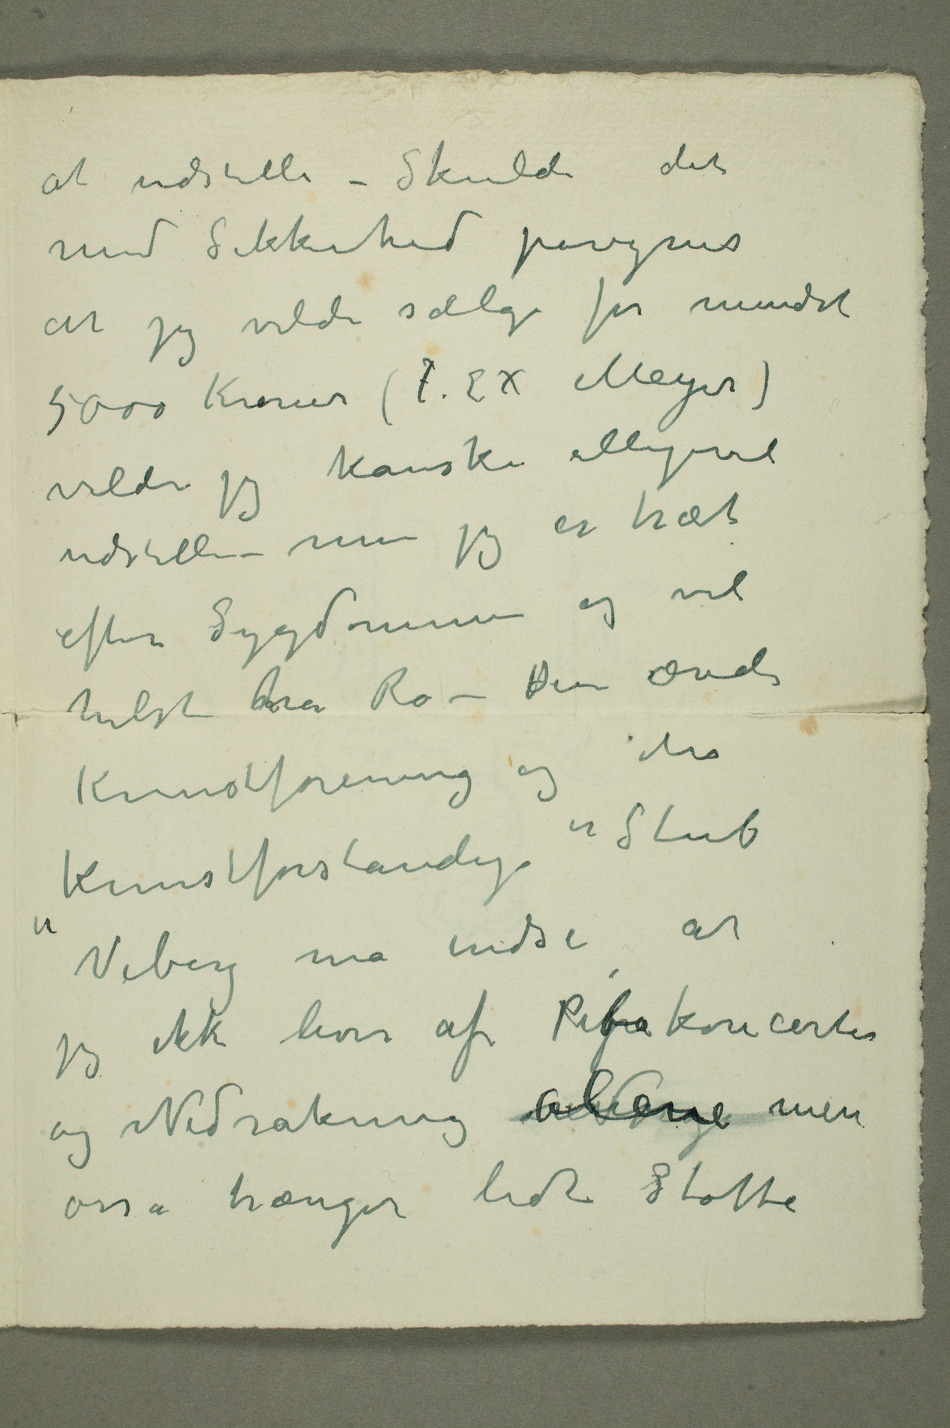 at udstille – Skulde det
med Sikkerhed påregnes
at jeg vilde sælge for mindst
5000 Kroner (T. EX Meyer)
vilde jeg kanske alligevel
udstille – men jeg er træt
efter Sygdommen og vil
helst ha Ro – Den ærede
Kunstforening og dens
Kunstforstandige "Stub
" Viberg må indse, at
jeg ikke lever af Pibekoncerter
og Nedrakning alene men
også trænger lidt Støtte